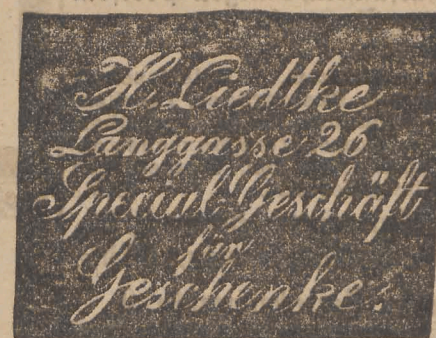 H. Liedtke
Langgasse 26
Special Geschäft
für
Geschenke.